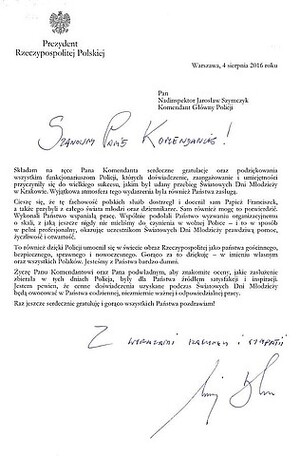 Prezydent
Rzeczypospolitej Polskiej
Warszawa, 4 sierpnia 2016 roku
Pan
Nadinspektor Jarosław Szymczyk
Komendant Główny Policji
Szanowny Panie Komendancie!
Składam na ręce Pana Komendanta serdeczne gratulacje oraz podziękowania
wszystkim funkcjonariuszom Policji, których doświadczenie, zaangażowanie i umiejętności
przyczyniły się do wielkiego sukcesu, jakim był udany przebieg Światowych Dni Młodzieży
w Krakowie. Wyjątkowa atmosfera tego wydarzenia była również Państwa zasługą.
Cieszę się, że tę fachowość polskich służb dostrzegł i docenił sam Papież Franciszek,
a także przybyli z całego świata młodzi oraz dziennikarze. Sam również mogę to powiedzieć.
Wykonali Państwo wspaniałą pracę. Wspólnie podołali Państwo wyzwaniu organizacyjnemu
o skali, z jaką jeszcze nigdy nie mieliśmy do czynienia w wolnej Polsce – i to w sposób
w pełni profesjonalny, okazując uczestnikom Światowych Dni Młodzieży prawdziwą pomoc,
życzliwość i otwartość.
To również dzięki Policji umocnił się w świecie obraz Rzeczypospolitej jako państwa gościnnego,
bezpiecznego, sprawnego i nowoczesnego. Gorąco za to dziękuję – w imieniu własnym
oraz wszystkich Polaków. Jesteśmy z Państwa bardzo dumni.
Życzę Panu Komendantowi oraz Pana podwładnym, aby znakomite oceny, jakie zasłużenie
zbierała w tych dniach Policja, były dla Państwa źródłem satysfakcji i inspiracji.
Jestem pewien, że cenne doświadczenia uzyskane podczas Światowych Dni Młodzieży
będą owocować w Państwa codziennej, niezmiernie ważnej i odpowiedzialnej pracy.
Raz jeszcze serdecznie gratuluję i gorąco wszystkich Państwa pozdrawiam!
Z wyrazami szacunku i sympatii